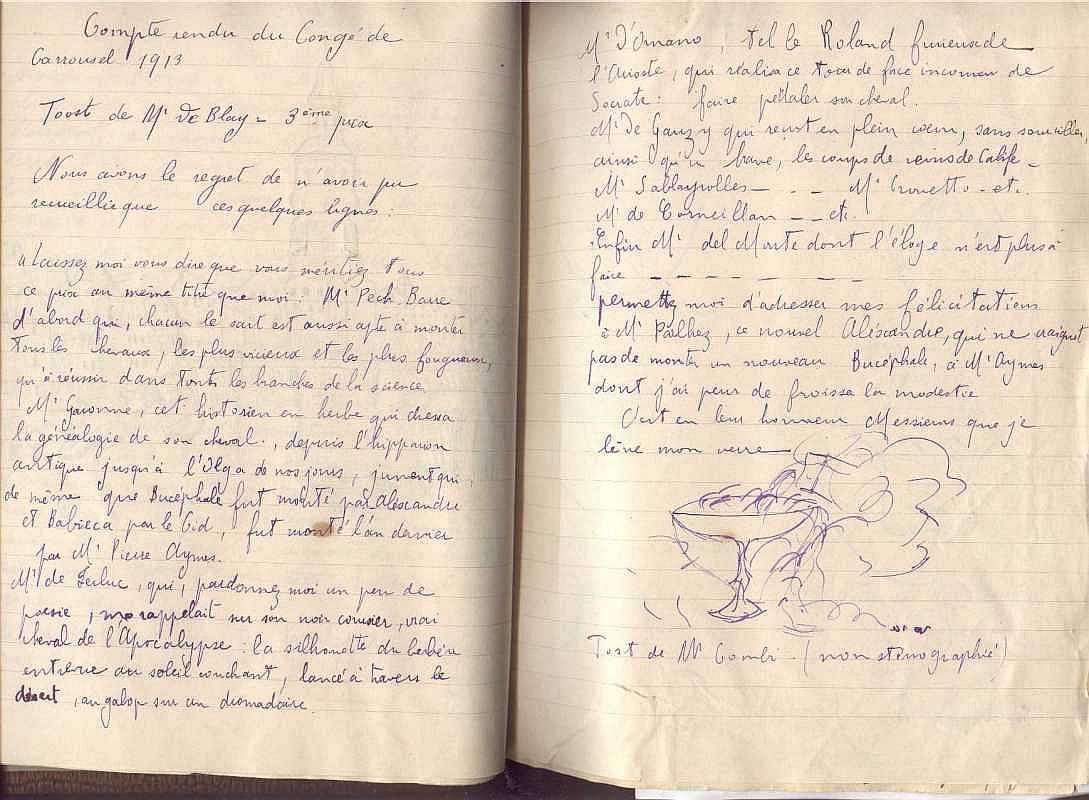 Compte rendu du Congé de
Carrousel 1913
Toost de Mr de Blay = 3ème prix
Nous avons le regret de n'avoir pu
recueillir que ces quelques lignes :
"Laissez moi vous dire que vous méritiez tous
ce prix au même titre que moi : Mr Pech Barre
d'abord qui, chacun le sait est aussi apte à monter
tous les chevaux, les plus vicieux et les plus fougueux,
qu'à réussir dans toutes les branches de la science
Mr Garonne, cet historien en herbe qui dressa
la généalogie de son cheval, depuis l'hipparion
antique jusqu'à l'Olga de nos jours, jument qui,
de même que Bucéphale fut monté par Aléxandre
et Babieca par le Cid, fut monté l'an dernier
par Mr Pierre Aymes.
Mr de , qui, pardonnez moi un peu de
poésie, me rappelait sur son noir coursier, vrai
cheval de l'Apocalypse : la silhouette du berbère
entrevue au soleil couchant, lancé à travers le
désert, au galop sur un dromadaire.
Mr D'Ornano, tel le Roland furieux de
l'Arioste, qui réalisa ce tour de force inconnu de
Socrate : faire pédaler son cheval.
Mr de Gauzy qui reçut en plein coeur, sans sourciller,
ainsi qu'un brave, les coups de reins de Calife -
Mr Sablayrolles - - - Mr Crouetto - etc.
Mr de Corneillan - - etc.
Enfin Mr del Monte dont l'éloge n'est plus à
faire - - - - - - -
permettez moi d'adresser mes félicitations
à Mr Pailhez, ce nouvel Aléxandre, qui ne craignit
pas de monter un nouveau Bucéphale, à Mr Aymes
dont j'ai peur de froisser la modestie
C'est en leur honneur Messieurs que je
lève mon verre
Tost de Mr Combi - (non sténographié)